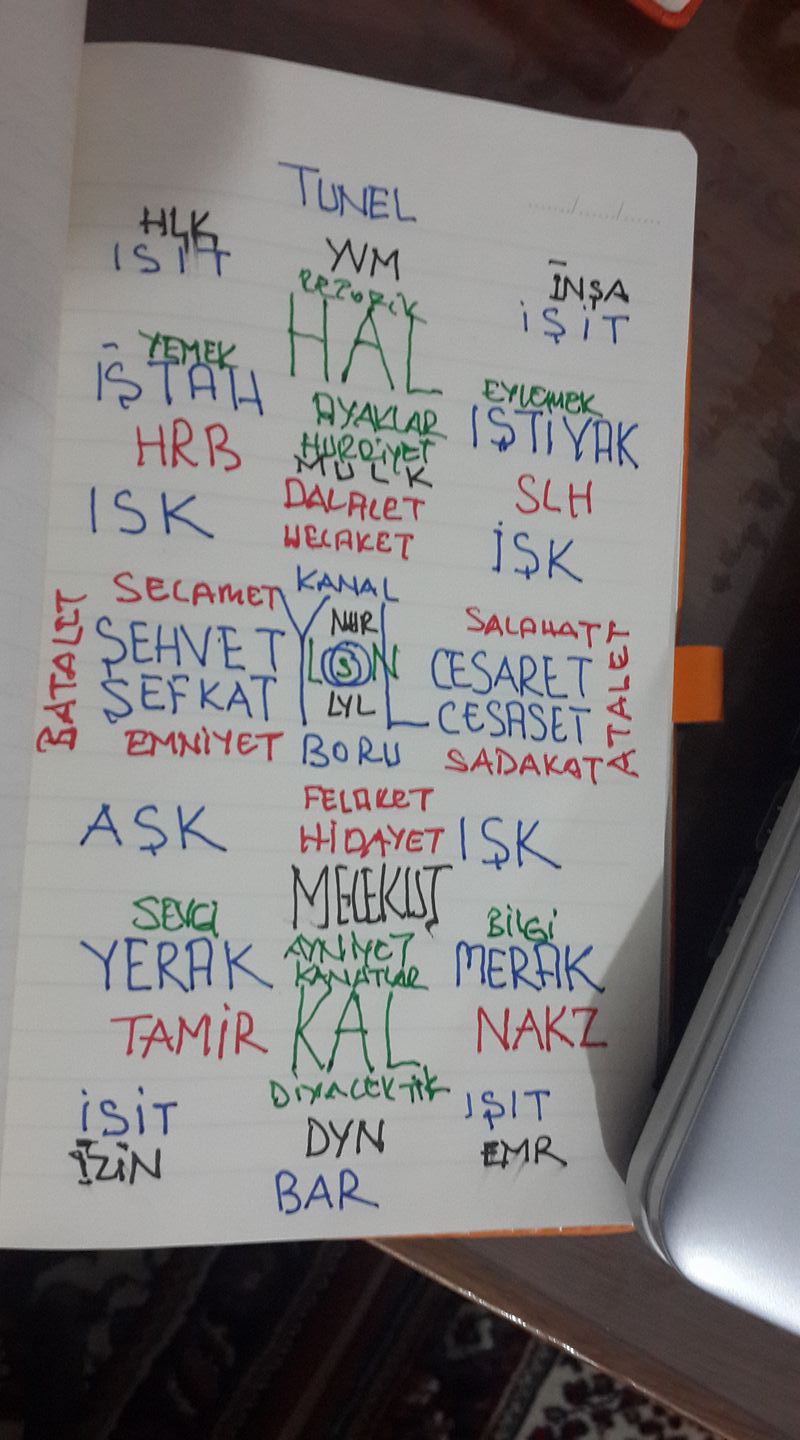 TUNEL
HLK
ISIT
YVM
İNŞA
İŞİT
HAL
YEMEK
İŞTAH
EYLEMEK
IŞTİYAK
AYAKLAR
HÜRRİYET
MÜLK
HRB
SLH
DALALET
HELAKET
ISK
İŞK
KANAL
SELAMET
NUR
SALAHAT
BATALET
ŞEHVET
YOL
S
CESARET
ATALET
ŞEFKAT
LYL
CESASET
EMNİYET
BORU
SADAKAT
FELAKET
HİDAYET
AŞK
IŞK
MELEKUT
SEVGİ
BİLGİ
YERAK
AYNİYET
KANATLAR
MERAK
TAMİR
KAL
NAKZ
DİYALEKTİK
İSİT
IŞIT
İZİN
DYN
EMR
BAR